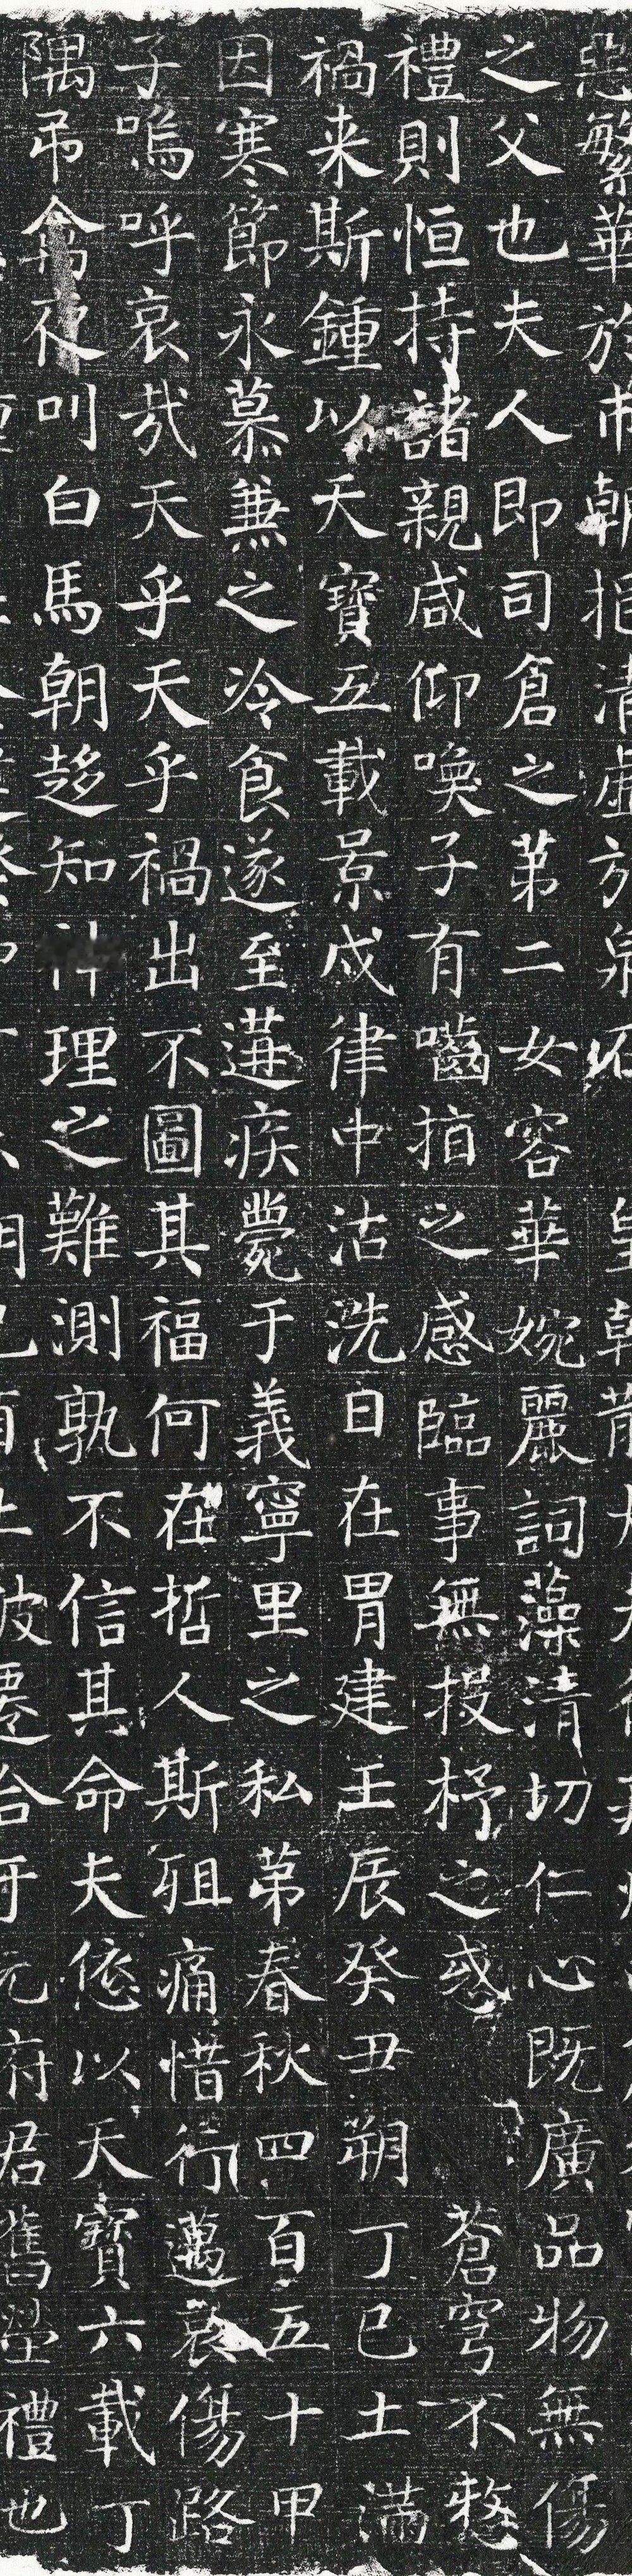 繁華於市朝挹清虛於泉石
之父也夫人即司倉之第二女容華婉麗詞藻清切仁心既廣品物無傷
禮則恒持諸親咸仰喚子有嚙指之感臨事無投杼之惑蒼穹不憖
禍来斯鍾以天寶五載景戍律中沽洗日在胃建壬辰癸丑朔丁巳土滿
因寒節永慕兼之冷食遂至遘疾薨于義寧里之私第春秋四百五十甲
子嗚呼哀哉天乎天乎禍出不圖其福何在哲人斯殂痛惜行邁哀傷路
隅吊禽夜叫白馬朝趍知神理之難測孰不信其命夫恡以天寶六載丁
府君舊塋禮也